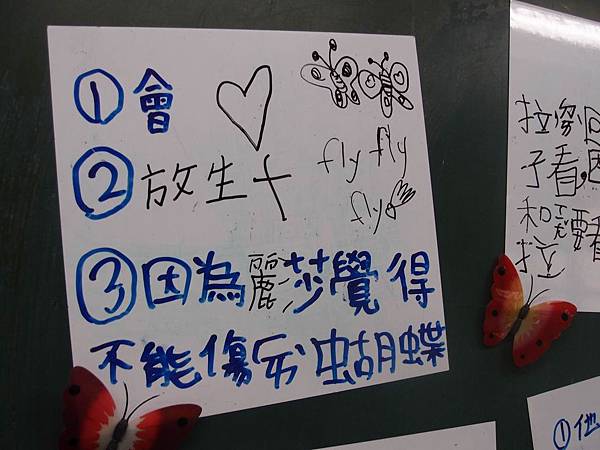 ①會
②放生
fly fly
fly
③因為麗莎覺得
不能傷 蝴蝶
拉窗
子看
和 要看
拉
①他